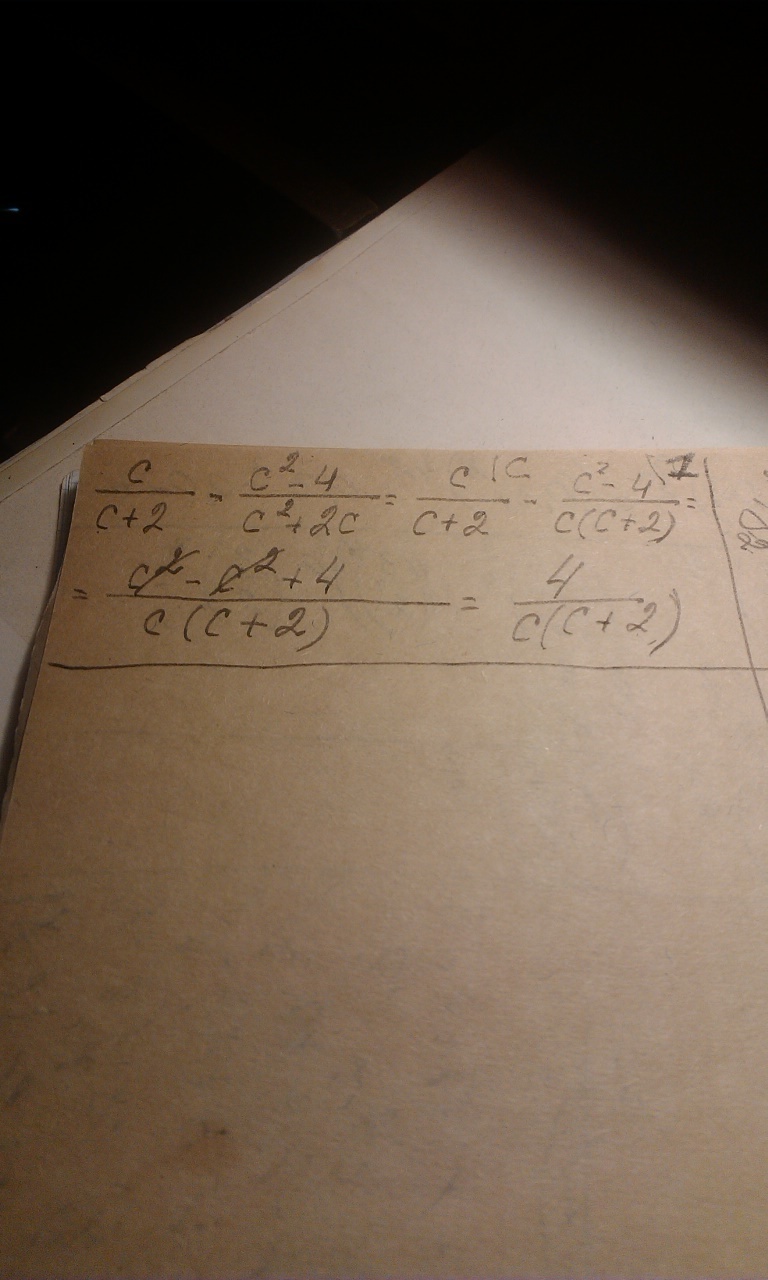 c/(c+2) - (c²-4)/(c²+2c) = c/(c+2) (c - (c²-4)/(c(c+2)) )1 =
= (c²-c²+4)/(c(c+2)) = 4/(c(c+2))